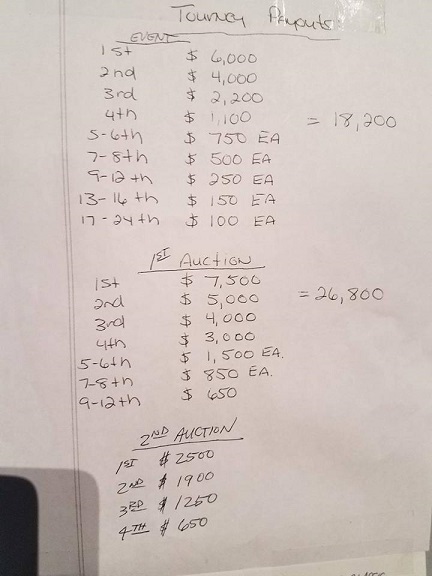 Tourney Payouts
EVENT
1st $ 6,000
2nd $ 4,000
3rd $ 2,200
4th $ 1,100 = 18,200
5-6th $ 750 EA
7-8th $ 500 EA
9-12th $ 250 EA
13-16th $ 150 EA
17-24th $ 100 EA
1ST AUCTION
1st $ 7,500
2nd $ 5,000 = 26,800
3rd $ 4,000
4th $ 3,000
5-6th $ 1,500 EA.
7-8th $ 850 EA.
9-12th $ 650
2ND AUCTION
1ST $ 2500
2ND $ 1900
3RD $ 1250
4TH $ 650